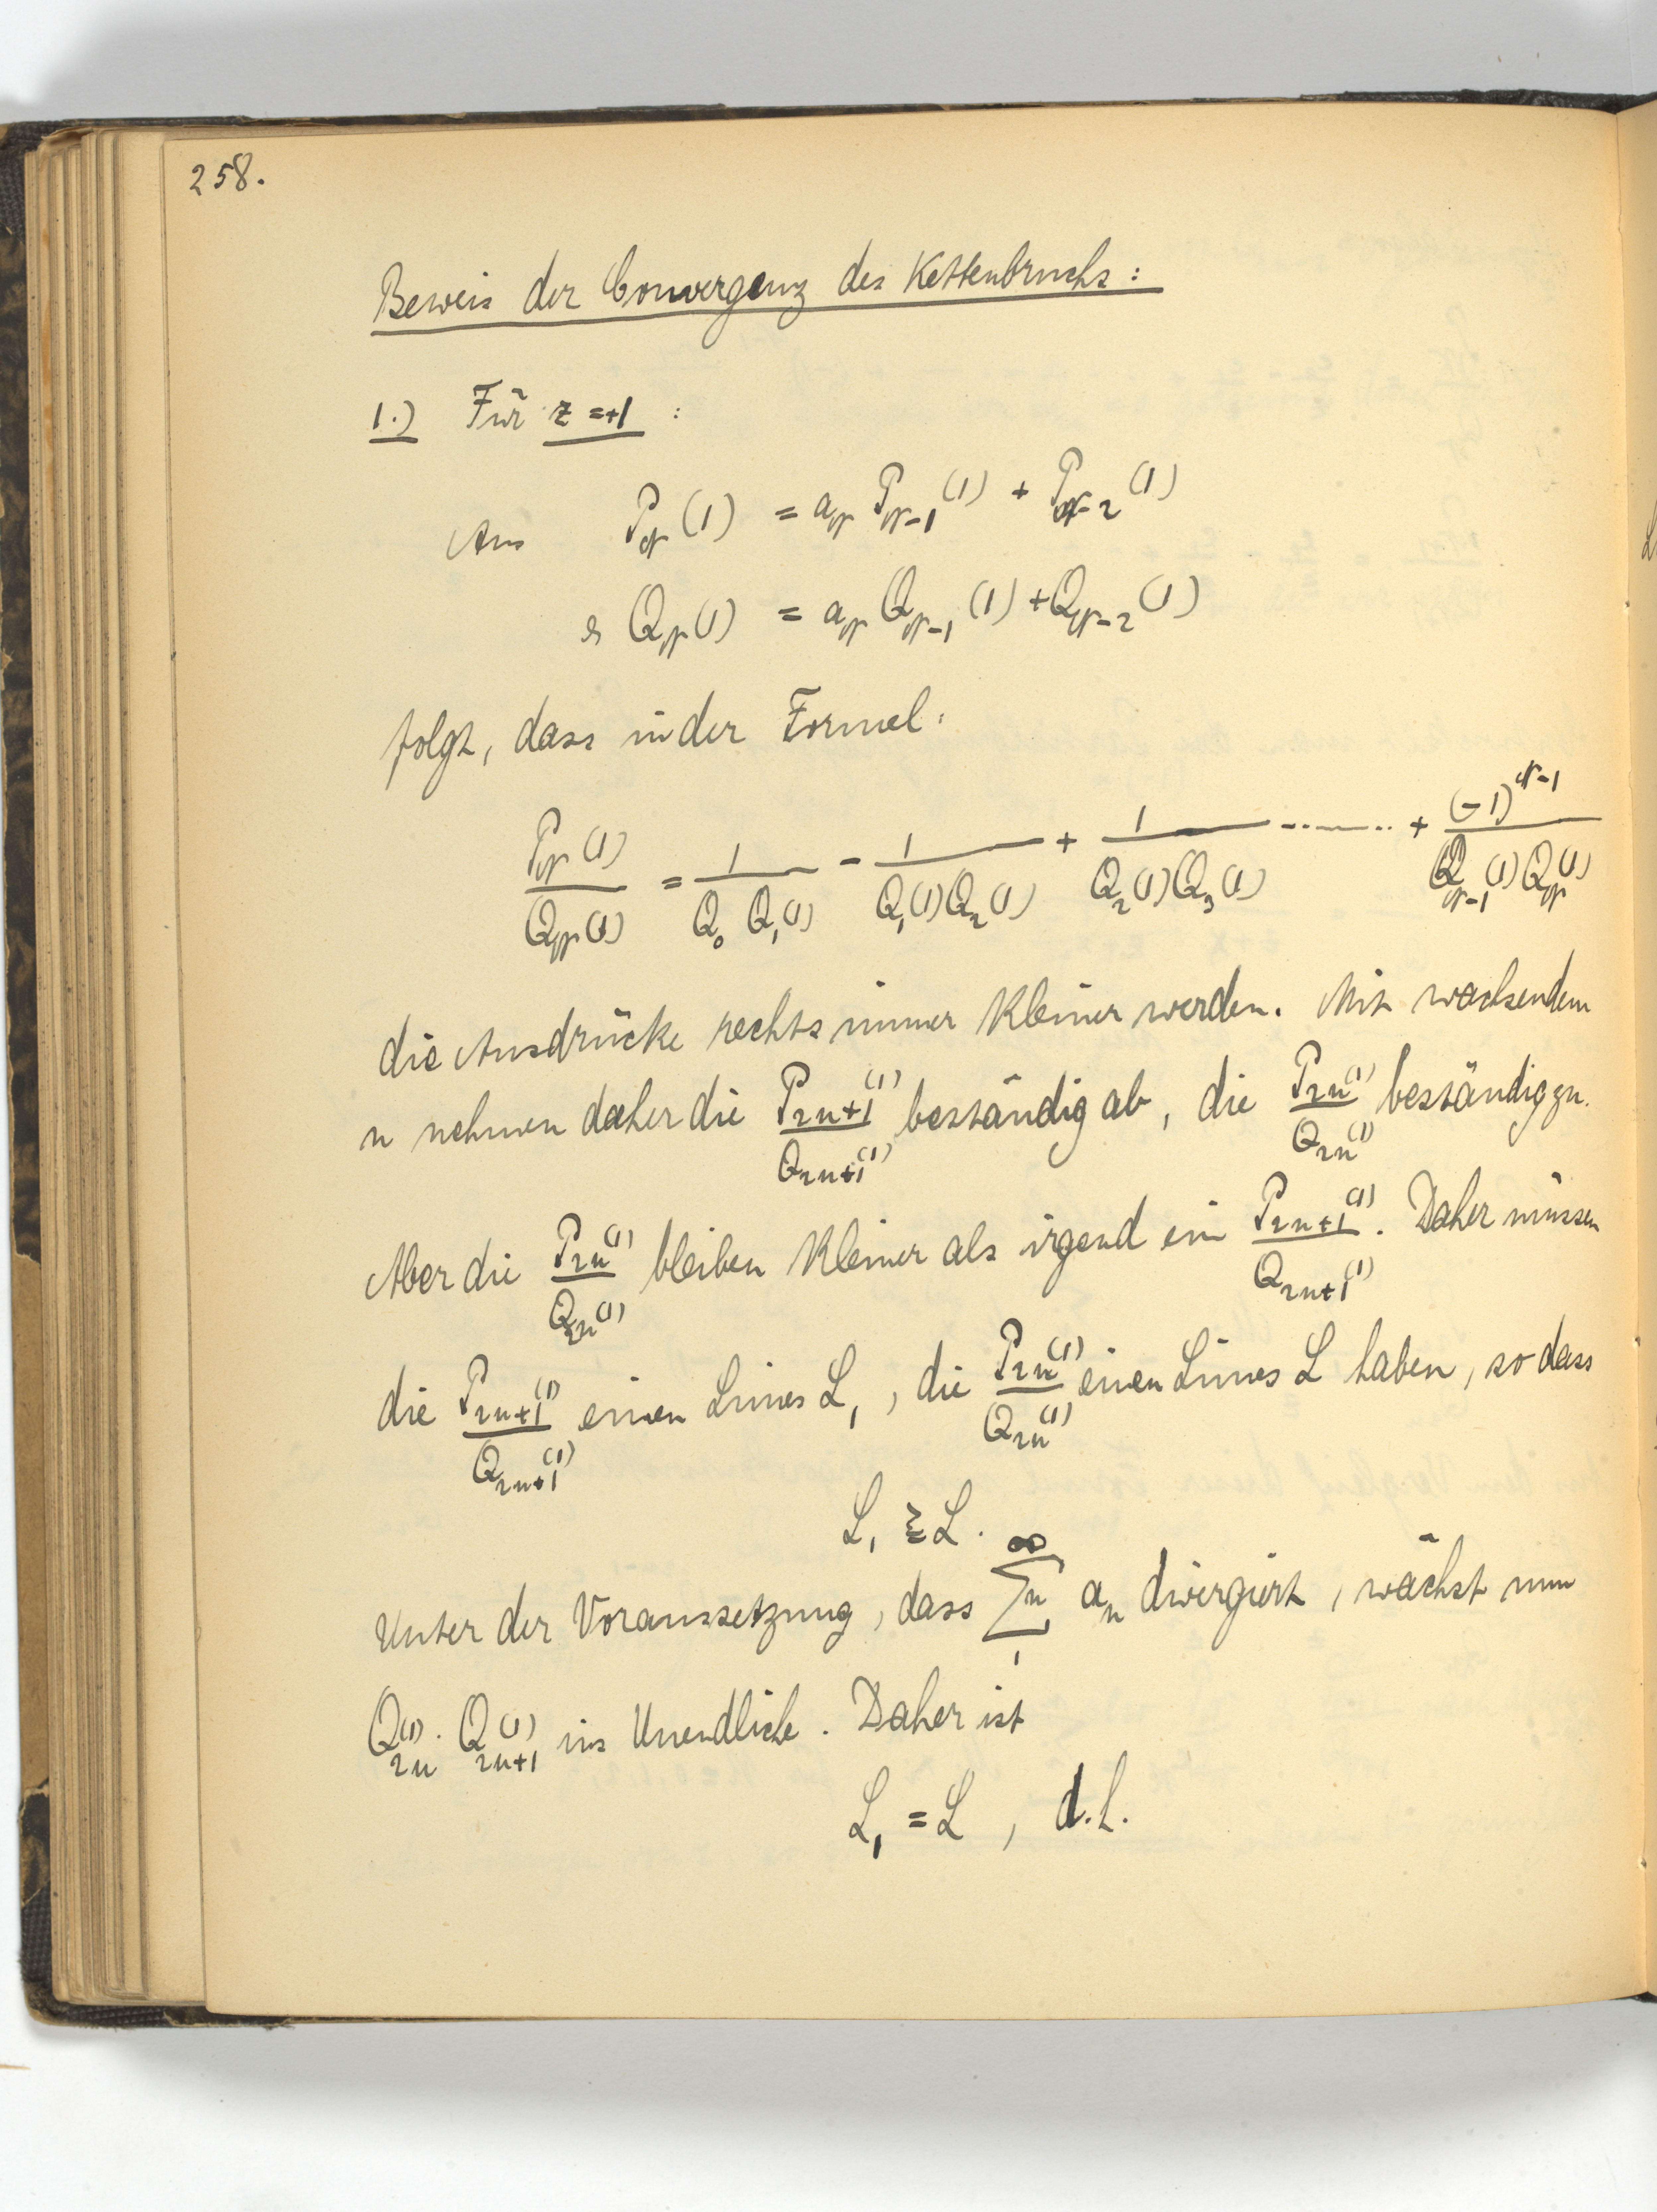 258.
Beweis der Convergenz des Kettenbruchs:
1.) Für z = +1 :
Aus P_r(1) = a_r P_{r-1}(1) + P_{r-2}(1)
& Q_r(1) = a_r Q_{r-1}(1) + Q_{r-2}(1)
folgt, dass in der Formel:
P_r(1)/Q_r(1) = 1/(Q_0 Q_1(1)) - 1/(Q_1(1) Q_2(1)) + 1/(Q_2(1) Q_3(1)) ........ + (-1)^{r-1}/(Q_{r-1}(1) Q_r(1))
die Ausdrücke rechts immer kleiner werden. Mit wachsendem
n nehmen daher die P_{2n+1}(1)/Q_{2n+1}(1) beständig ab, die P_{2n}(1)/Q_{2n}(1) beständig zu.
Aber die P_{2n}(1)/Q_{2n}(1) bleiben kleiner als irgend ein P_{2n+1}(1)/Q_{2n+1}(1). Daher müssen
die P_{2n+1}(1)/Q_{2n+1}(1) einen Limes L_1, die P_{2n}(1)/Q_{2n}(1) einen Limes L haben, so dass
L_1 ≥ L.
Unter der Voraussetzung, dass ∑_1^∞ n a_n divergiert, wächst nun
Q_{2n}(1) · Q_{2n+1}(1) ins Unendliche. Daher ist
L_1 = L , d.h.